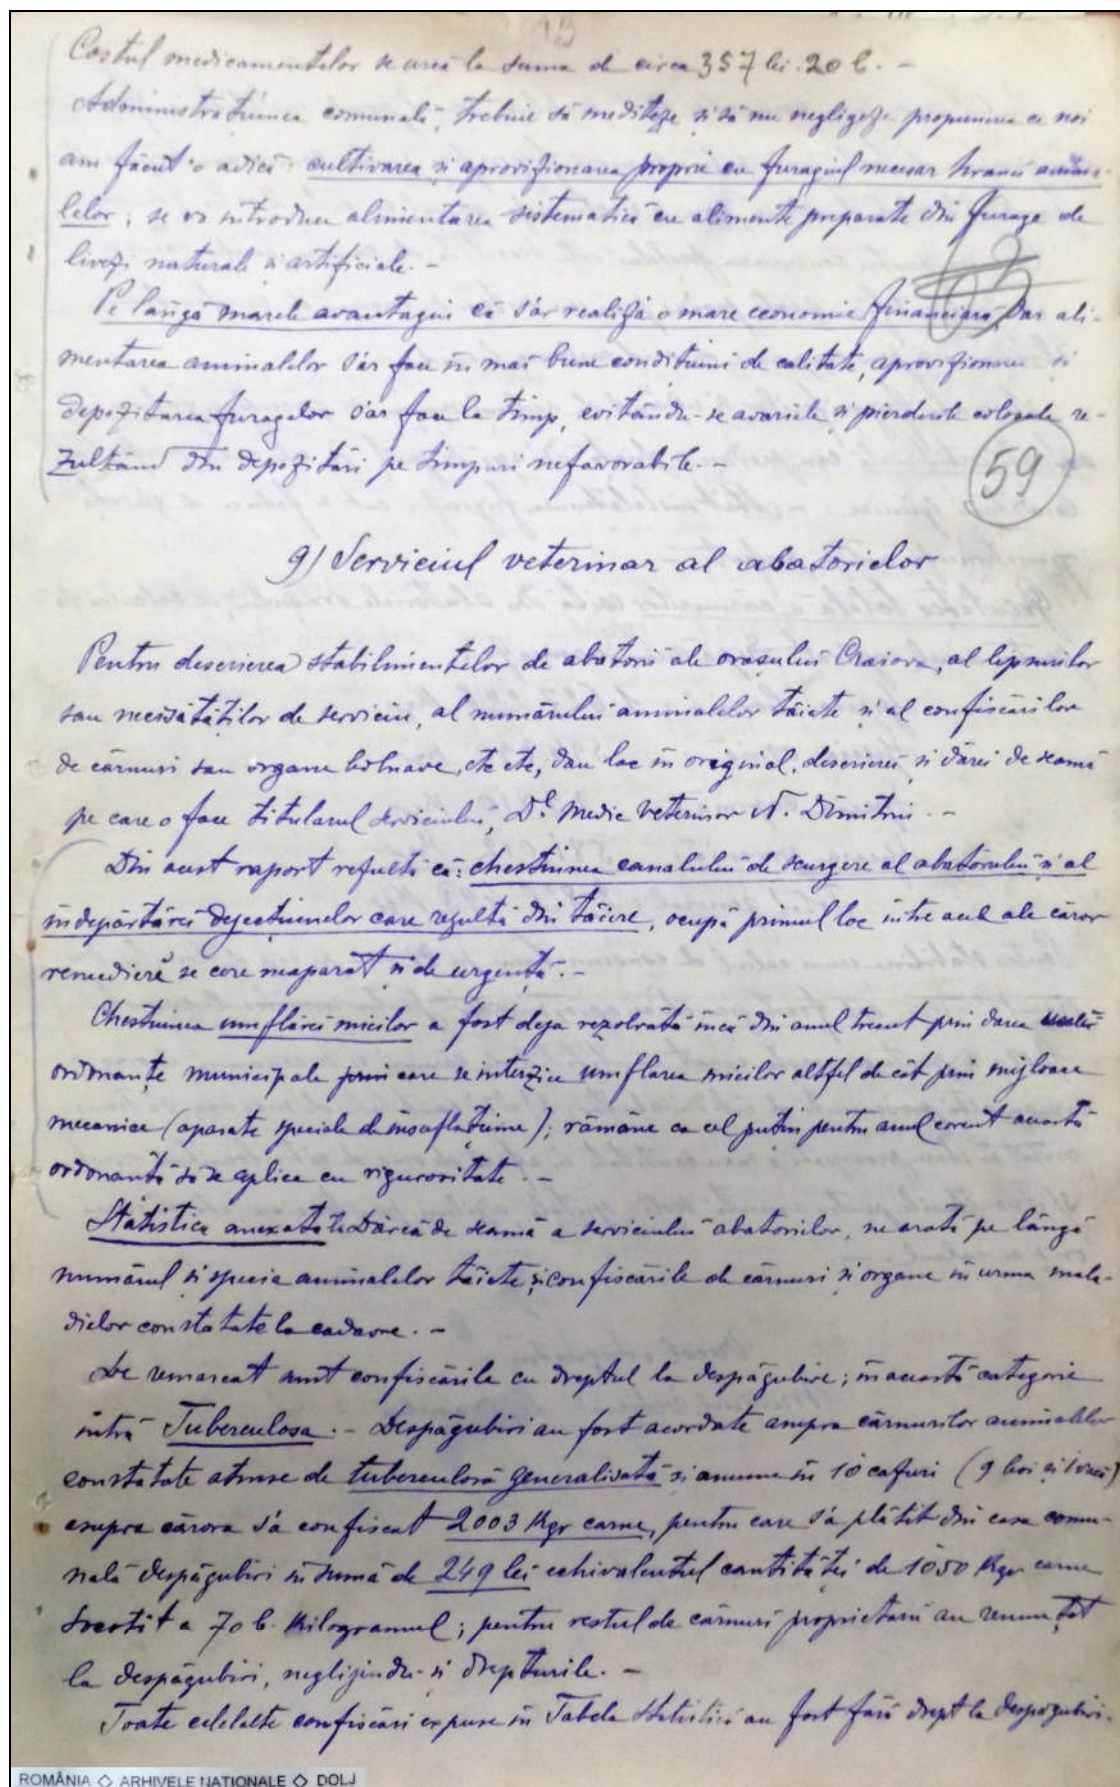 Costul medicamentelor se urcă la suma de circa 357 lei 20 b. -
Administrațiunea comunală, trebuie să mediteze și să nu negligeze propunerea ce noi
am făcut'o adică: cultivarea și aprovizionarea proprie cu furagiul necesar hranei anima-
lelor; se va introduce alimentarea sistematică cu alimente preparate din furage de
livezi naturale și artificiale. -
Pe lângă marele avantagiu că s'ar realiză o mare economie financiară, dar ali-
mentarea animalelor s'ar face în mai bune condițiuni de calitate, aprovizionarea și
depozitarea furagelor s'ar face la timp, evitându-se avariele și pierderile colosale re-
zultând din depozitări pe timpuri nefavorabile. -
59
9) Serviciul veterinar al abatorielor
Pentru descrierea stabilimentelor de abatorii ale orașului Craiova, al lipsurilor
sau necesităților de serviciu, al numărului animalelor tăiete și al confiscărilor
de cărnuri sau organe bolnave, etc etc, dau loc în original, descrierei și dărei de seamă
pe care o face titularul serviciului, Dl. Medic veterinar N. Dimitriu. -
Din acest raport rezultă că: chestiunea canalului de scurgere al abatorului și al
îndepărtărei dejecțiunelor care rezultă din tăiere, ocupă primul loc între acele ale căror
remediere se cere neapărat și de urgență. -
Chestiunea umflărei micilor a fost deja rezolvată încă din anul trecut prin darea
ordonanțe municipale prin care se interzice umflarea micilor altfel de cât prin mijloace
mecanice (aparate speciale de insuflațiune); rămâne ca cel puțin pentru anul corent această
ordonanță să se aplice cu rigurozitate. -
Statistica anexată la Dărea de seamă a serviciului abatoriilor, ne arată pe lângă
numărul și specia animalelor tăiete și confiscările de cărnuri și organe în urma mala-
dielor constatate la cadavre. -
De remarcat sunt confiscările cu dreptul la despăgubire; în această categorie
intră Tuberculosa. - Despăgubiri au fost acordate asupra cărnurilor animalelor
constatate atinse de tuberculosă generalisată și anume în 10 cazuri (9 boi și 1 vacă)
asupra cărora s'a confiscat 2003 Kgr carne, pentru care s'a plătit din casa comu-
nală despăgubiri în sumă de 249 lei echivalentul cantităței de 1050 Kgr carne
socotit a 70 b. Kilogramul; pentru restul de cărnuri proprietarii au renunțat
la despăgubiri, neglijindu-și drepturile. -
Toate celelalte confiscări expuse în Tabela Statistică au fost fără drept la despăgubiri.
ROMÂNIA ◇ ARHIVELE NAȚIONALE ◇ DOLJ